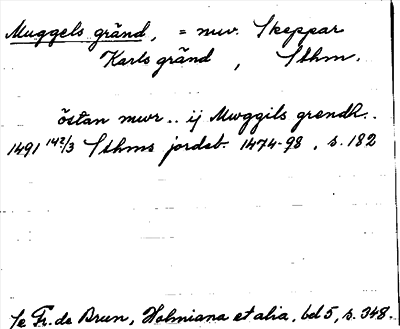 Muggels gränd, = nuv. Skeppar
Karls gränd, Sthm.
östan mwr .. ij Mwggils grendh..
1491 14 2/3 Sthms jordeb. 1474-98, s. 182
Se Fr. de Brun, Holmiana et alia, bd 5, s. 348.